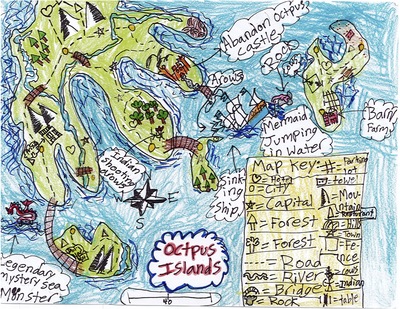 Abandon Octpus
Castle
Arows
Rock
Barn
Farm
Mermaid
Jumping
in Water
Indian
Shooting
arows
Sink
ing
Ship
E
S
Legendary
mystery sea
Monster
Octpus
Islands
40
Map Key:
O=City
=Capital
=Forest
=Forest
=Road
=River
=Bridge
=Rock
=Mou
ntain
=Hill
=Town
=Fe
nce
=Indian
=table